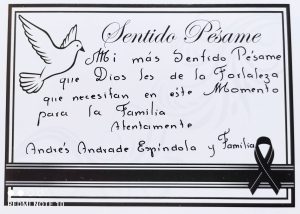 Sentido Pésame
Mi más Sentido Pésame
que Dios les de la Fortaleza
que necesitan en este Momento
para la Familia
Atentamente
Andrés Andrade Espíndola y Familia
REDMI NOTE 10